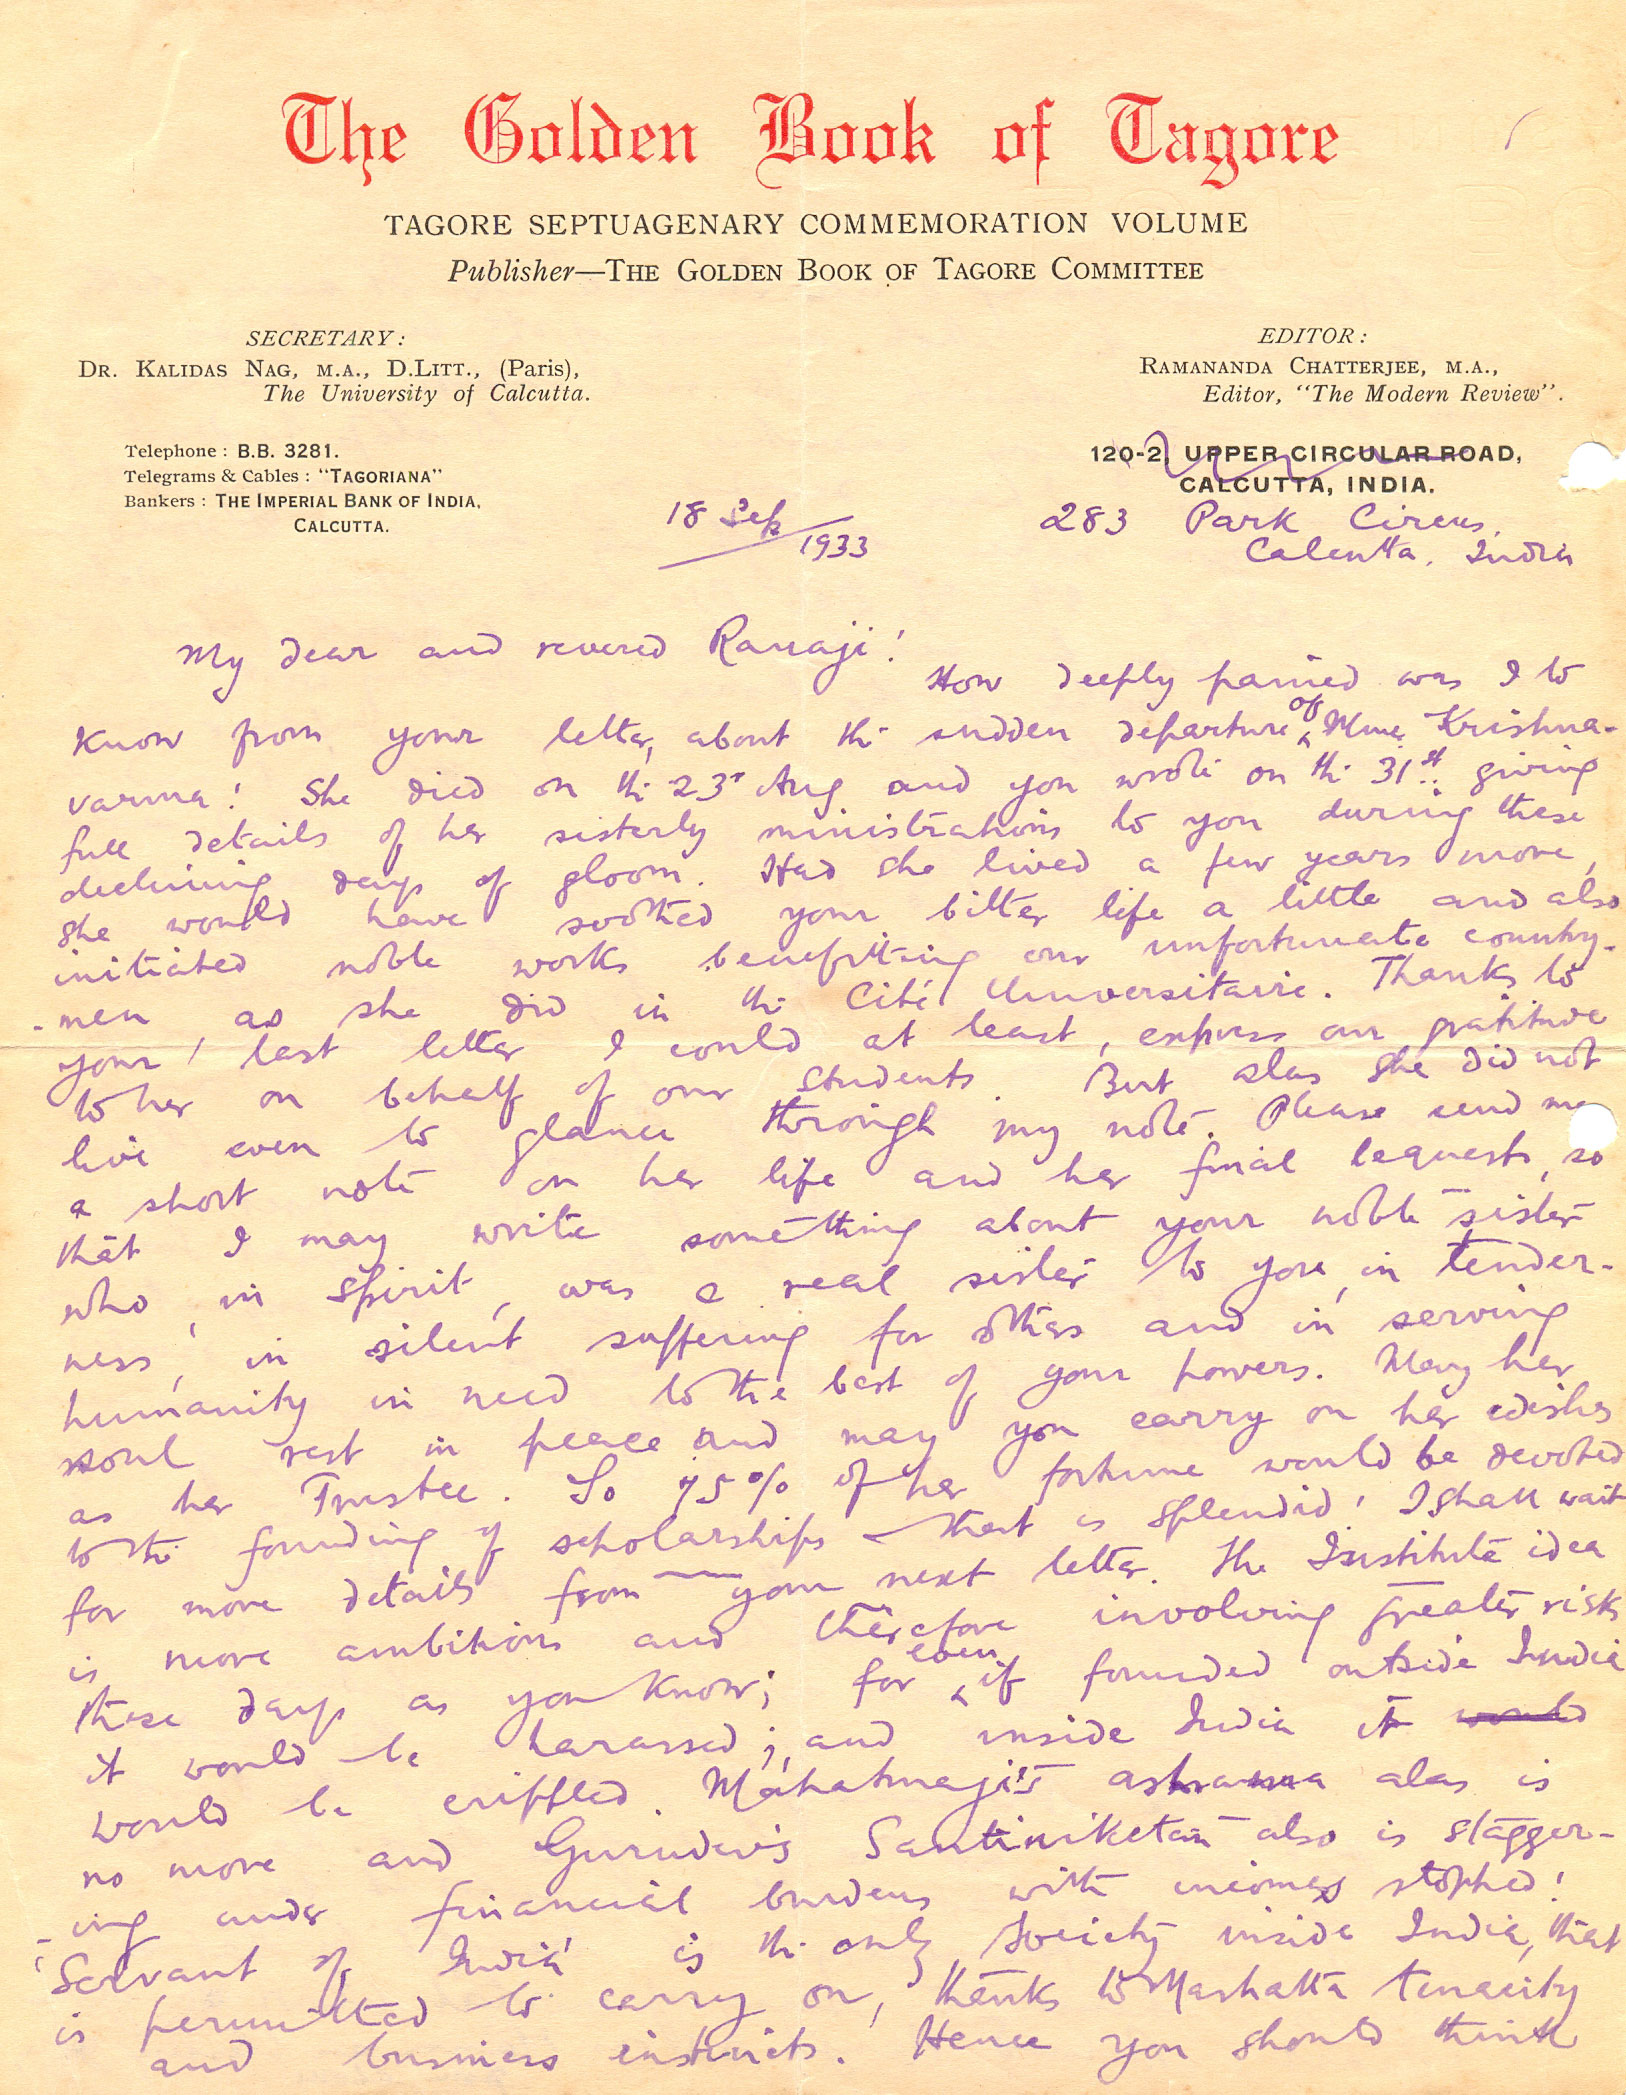 The Golden Book of Tagore
TAGORE SEPTUAGENARY COMMEMORATION VOLUME
Publisher—THE GOLDEN BOOK OF TAGORE COMMITTEE
SECRETARY:
DR. KALIDAS NAG, M.A., D.LITT., (Paris),
The University of Calcutta.
EDITOR:
RAMANANDA CHATTERJEE, M.A.,
Editor, "The Modern Review".
Telephone: B.B. 3281.
Telegrams & Cables: "TAGORIANA"
Bankers: THE IMPERIAL BANK OF INDIA,
CALCUTTA.
120-2, UPPER CIRCULAR ROAD,
CALCUTTA, INDIA.
18 Sep 1933
283 Park Circus,
Calcutta, India
My dear and revered Ranaji!
How deeply pained was I to
know from your letter, about the sudden departure of Mme. Krishna-
varma! She died on the 23rd Aug and you wrote on the 31st. giving
full details of her sisterly ministrations to you during these
declining days of gloom. Had she lived a few years more,
she would have soothed your bitter life a little and also
initiated noble works benefitting our unfortunate country-
-men as she did in the Cité Universitaire. Thanks to
your last letter I could at least, express our gratitude
to her on behalf of our students. But alas she did not
live even to glance through my note. Please send me
a short note on her life and her final bequests, so
that I may write something about your noble sister
who, in spirit, was a real sister to you, in tender-
ness, in silent suffering for others and in serving
humanity in need to the best of your powers. May her
soul rest in peace and may you carry on her wishes
as her Trustee. So 75% of her fortune would be devoted
to the founding of scholarships — that is splendid! I shall wait
for more details from your next letter. The Institute idea
is more ambitious and therefore involving greater risks
these days as you know; for even if founded outside India
it would be harassed; and inside India it would
would be crippled. Mahatmaji's ashrama alas is
no more and Gurudev's Santiniketan also is stagger-
-ing under financial burdens with incomes stopped!
'Servant of India' is the only Society inside India, that
is permitted to carry on, thanks to Marhatta tenacity
and business instincts. Hence you should think